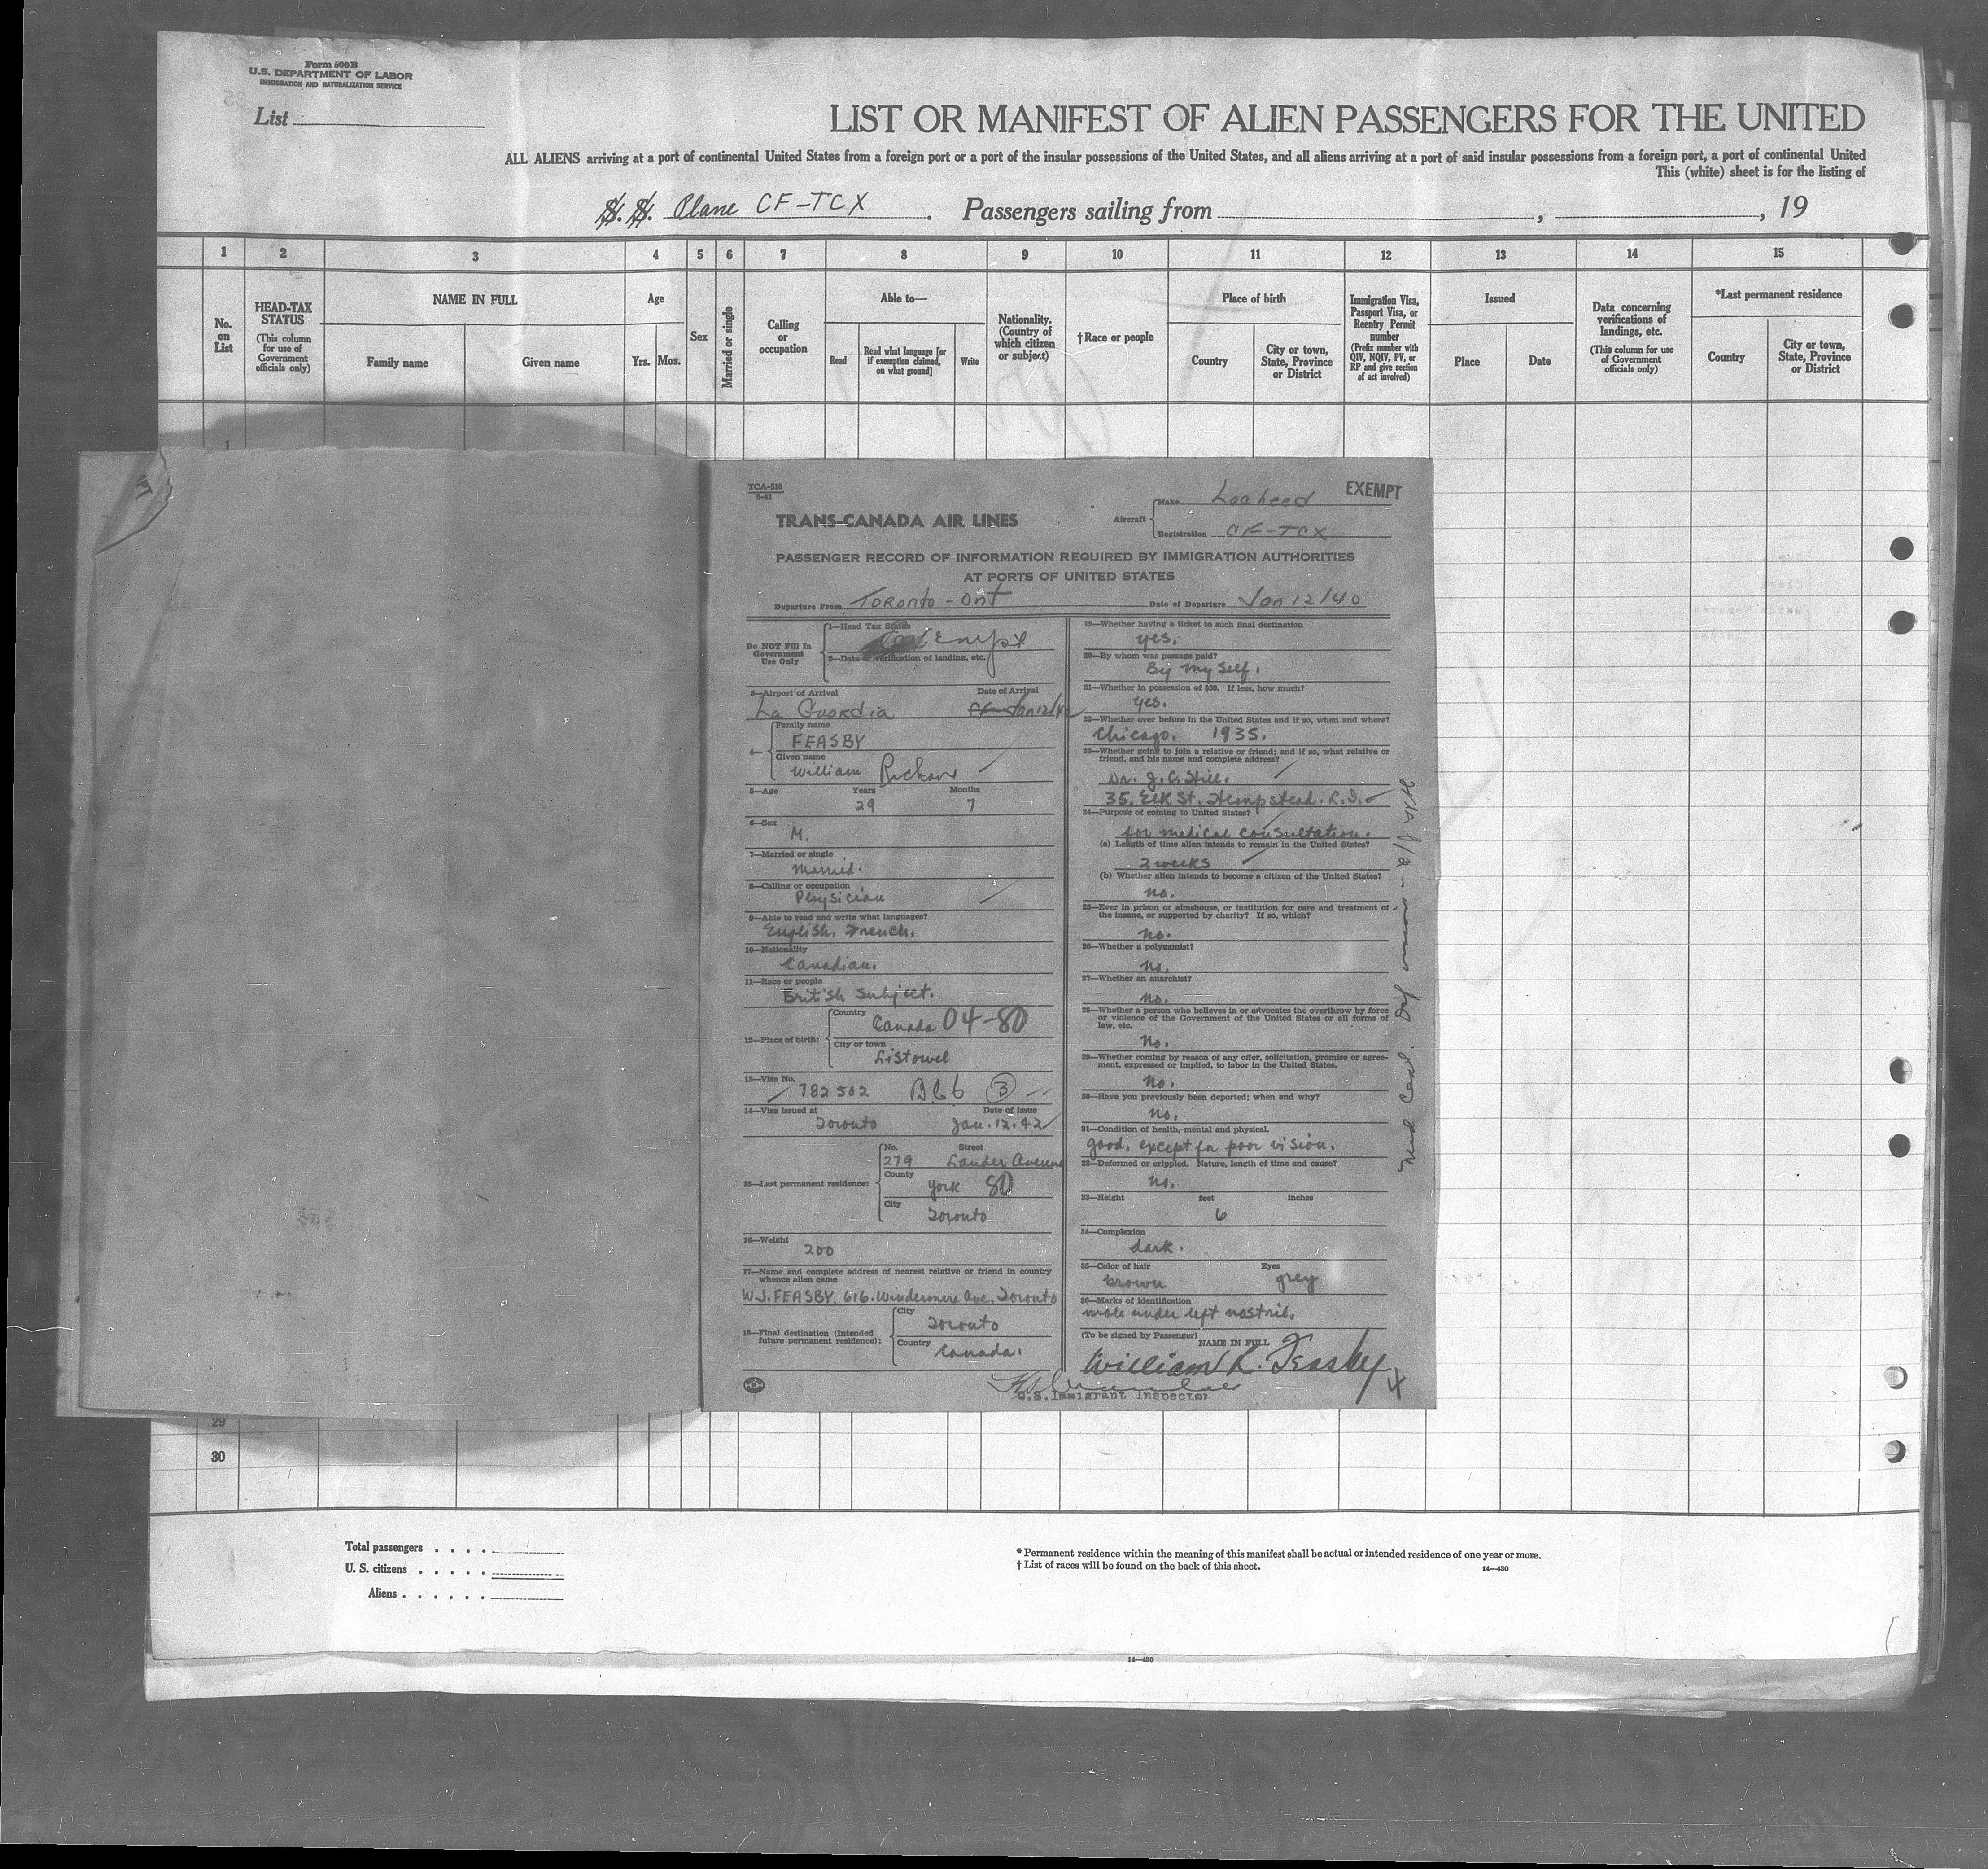 Form 600B
U.S. DEPARTMENT OF LABOR
IMMIGRATION AND NATURALIZATION SERVICE
List
LIST OR MANIFEST OF ALIEN PASSENGERS FOR THE UNITED
ALL ALIENS arriving at a port of continental United States from a foreign port or a port of the insular possessions of the United States, and all aliens arriving at a port of said insular possessions from a foreign port, a port of continental United
This (white) sheet is for the listing of
S.S. Plane CF-TCX. Passengers sailing from , , 19
1 2 3 4 5 6 7 8 9 10 11 12 13 14 15
No. on List
HEAD-TAX STATUS (This column for use of Government officials only)
NAME IN FULL
Family name Given name
Age
Yrs. Mos.
Sex
Married or single
Calling or occupation
Able to—
Read Read what language [or if exemption claimed, on what ground] Write
Nationality. (Country of which citizen or subject)
†Race or people
Place of birth
Country City or town, State, Province or District
Immigration Visa, Passport Visa, or Reentry Permit number (Prefix number with QIV, NQIV, PV, or RP and give section of act involved)
Issued
Place Date
Data concerning verifications of landings, etc. (This column for use of Government officials only)
*Last permanent residence
Country City or town, State, Province or District
1
TCA-518
5-41
EXEMPT
TRANS-CANADA AIR LINES
Aircraft
Make Locheed
Registration CF-TCX
PASSENGER RECORD OF INFORMATION REQUIRED BY IMMIGRATION AUTHORITIES
AT PORTS OF UNITED STATES
Departure From Toronto - Ont Date of Departure Jan 12/40
Do NOT Fill In Government Use Only
1—Head Tax Status
Exempt
2—Data or verification of landing, etc.
3—Airport of Arrival Date of Arrival
La Guardia Jan 12/42
4—
Family name
FEASBY
Given name
William Richard
5—Age Years Months
29 7
6—Sex
M.
7—Married or single
Married.
8—Calling or occupation
Physician
9—Able to read and write what languages?
English. French.
10—Nationality
Canadian.
11—Race or people
British Subject.
12—Place of birth:
Country
Canada 04-80
City or town
Listowel
13—Visa No.
782502 B66 3
14—Visa issued at Date of Issue
Toronto Jan. 12. 42
15—Last permanent residence:
No. Street
279 Lauder Avenue
County
York 80
City
Toronto
16—Weight
200
17—Name and complete address of nearest relative or friend in country whence alien came
W.J. FEASBY. 616. Windermere Ave. Toronto
18—Final destination (Intended future permanent residence):
City
Toronto
Country
Canada.
19—Whether having a ticket to such final destination
yes.
20—By whom was passage paid?
By my self.
21—Whether in possession of $50. If less, how much?
yes.
22—Whether ever before in the United States and if so, when and where?
Chicago. 1935.
23—Whether going to join a relative or friend; and if so, what relative or friend, and his name and complete address?
Dr. J. C. Hill.
35. Elk St. Hempstead. L.I.
24—Purpose of coming to United States?
for medical consultation.
(a) Length of time alien intends to remain in the United States?
2 weeks
(b) Whether alien intends to become a citizen of the United States?
no.
25—Ever in prison or almshouse, or institution for care and treatment of the insane, or supported by charity? If so, which?
no.
26—Whether a polygamist?
No.
27—Whether an anarchist?
No.
28—Whether a person who believes in or advocates the overthrow by force or violence of the Government of the United States or all forms of law, etc.
No.
29—Whether coming by reason of any offer, solicitation, promise or agreement, expressed or implied, to labor in the United States.
No.
30—Have you previously been deported; when and why?
no.
31—Condition of health, mental and physical.
good, except for poor vision.
32—Deformed or crippled. Nature, length of time and cause?
no.
33—Height feet inches
6
34—Complexion
dark.
35—Color of hair Eyes
brown grey
36—Marks of identification
mole under left nostril.
(To be signed by Passenger) NAME IN FULL
William R. Feasby
4
U.S. Immigrant Inspector
29
30
Total passengers
U. S. citizens
Aliens
* Permanent residence within the meaning of this manifest shall be actual or intended residence of one year or more.
† List of races will be found on the back of this sheet.
14—430
14—430